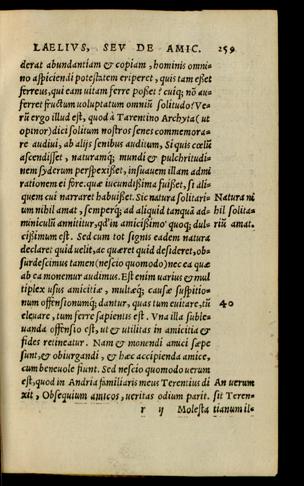 LAELIVS, SEV DE AMIC. 259
derat abundantiam & copiam, hominis omni-
no aspiciendi potestatem eriperet, quis tam esset
ferreus, qui eam uitam ferre posset? cuiq; nō au-
ferret fructum uoluptatum omniū solitudo? Ve-
rū ergo illud est, quod à Tarentino Archyta (ut
opinor) dici solitum nostros senes commemora-
re audiui, ab alijs senibus auditum, Si quis cœlū
ascendisset, naturamq; mundi & pulchritudi-
nem syderum perspexisset, insuauem illam admi
rationem ei fore, quæ iucundissima fuisset, si ali-
quem cui narraret habuisset. Sic natura solitari- Natura ni
um nihil amat, semperq; ad aliquid tanquā ad- hil solita-
miniculū annititur, qd' in amicissimo quoq; dul- riū amat.
cissimum est. Sed cum tot signis eadem natura
declaret quid uelit, ac quæret quid desideret, ob-
surdescimus tamen (nescio quomodo) nec ea quæ
ab ea monemur audimus. Est enim uarius & mul
tiplex usus amicitiæ, multæq; causæ suspitio-
num offensionumq; dantur, quas tum euitare, tū 40
eleuare, tum ferre sapientis est. Vna illa suble-
uanda offensio est, ut & utilitas in amicitia &
fides retineatur. Nam & monendi amici sæpe
sunt, & obiurgandi, & hæc accipienda amice,
cum beneuole fiunt. Sed nescio quomodo uerum
est, quod in Andria familiaris meus Terentius di An uerum
xit, Obsequium amicos, ueritas odium parit. sit Teren-
r ij Molesta tianum il-